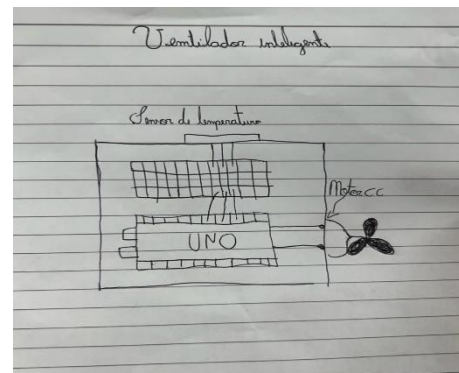 Ventilador inteligente
Sensor de temperatura
Motor CC
UNO